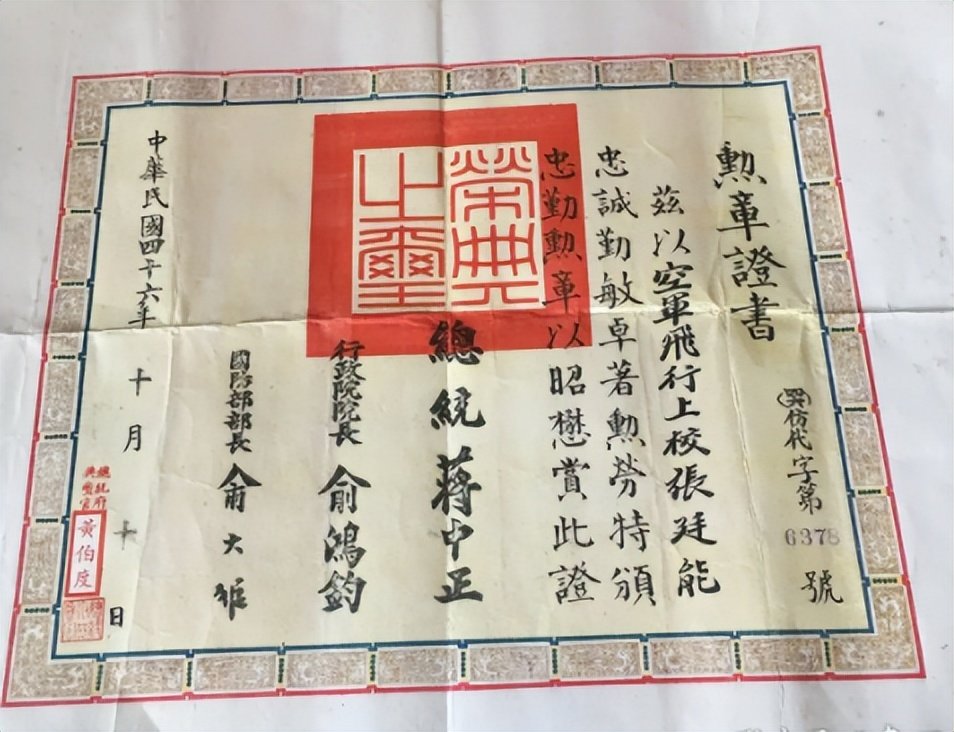 勲章證書
(癸)仿代字第6378號
茲以空軍飛行上校張廷能
忠誠勤敏卓著勲勞特頒
忠勤勲章以昭懋賞此證
榮典之璽
總統 蔣中正
行政院院長 俞鴻鈞
國防部部長 俞大維
中華民國四十六年十月十日
總統府
典璽官
黃伯度